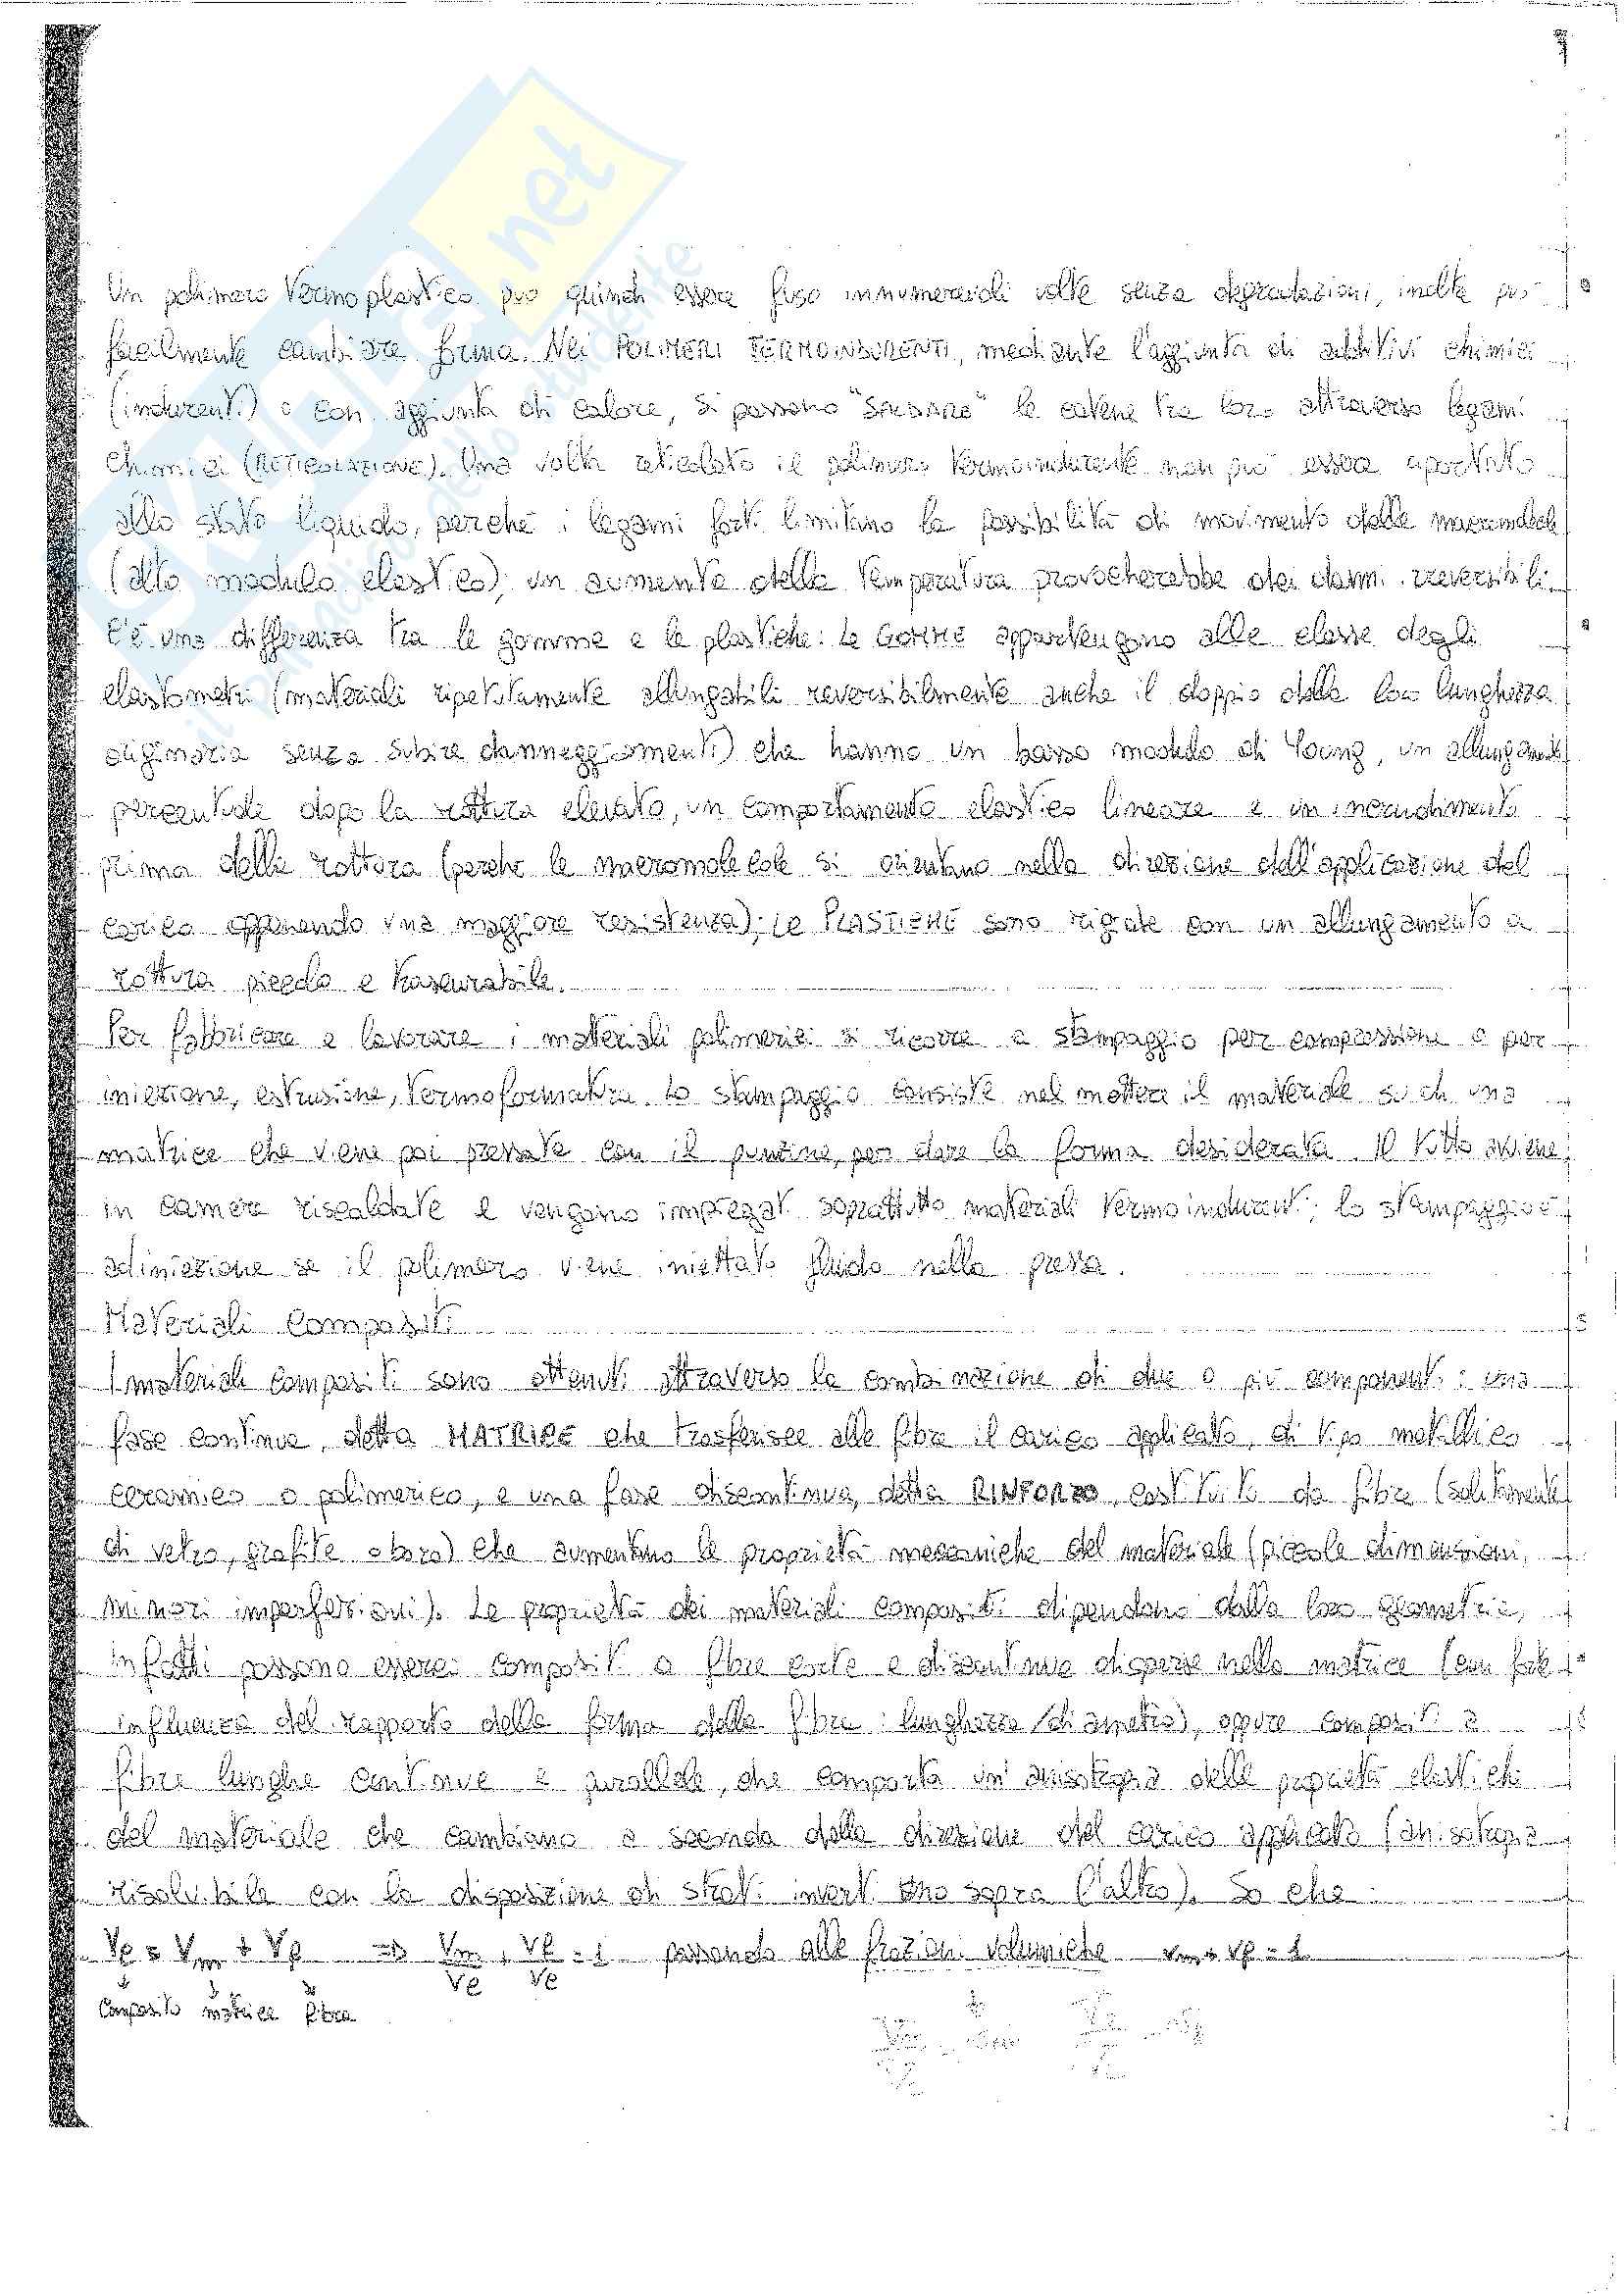 .net
Un polimero termoplastico può quindi essere fuso innumerevoli volte senza degradazioni, inoltre può
facilmente cambiare forma. Nei POLIMERI TERMOINDURENTI, mediante l'aggiunta di additivi chimici
(indurenti) o con aggiunta di calore, si possono "SALDARE" le catene tra loro attraverso legami
chimici (RETICOLAZIONE). Una volta reticolato il polimero termoindurente non può essere riportato
allo stato liquido, perché i legami forti limitano la possibilità di movimento delle macromolecole
(alto modulo elastico); un aumento della temperatura provocherebbe dei danni irreversibili.
C'è una differenza tra le gomme e le plastiche: le GOMME appartengono alle classe degli
elastomeri (materiali ripetutamente allungabili reversibilmente anche il doppio della loro lunghezza
originaria senza subire danneggiamenti) che hanno un basso modulo di Young, un allungamento
percentuale dopo la rottura elevato, un comportamento elastico lineare e un incrudimento
prima della rottura (perché le macromolecole si orientano nella direzione dell'applicazione del
carico opponendo una maggiore resistenza); le PLASTICHE sono rigide con un allungamento a
rottura piccolo e trascurabile.
Per fabbricare e lavorare i materiali polimerici si ricorre a stampaggio per compressione o per
iniezione, estrusione, termoformatura. Lo stampaggio consiste nel mettere il materiale su di una
matrice che viene poi pressata con il punzone, per dare la forma desiderata. Il tutto avviene
in camere riscaldate e vengono impiegati soprattutto materiali termoindurenti; lo stampaggio è
ad iniezione se il polimero viene iniettato fluido nella pressa.
Materiali Compositi
I materiali compositi sono ottenuti attraverso la combinazione di due o più componenti: una
fase continua, detta MATRICE che trasferisce alle fibre il carico applicato, di tipo metallico
ceramico o polimerico, e una fase discontinua, detta RINFORZO, costituito da fibre (solitamente
di vetro, grafite o boro) che aumentano le proprietà meccaniche del materiale (piccole dimensioni,
minori imperfezioni). Le proprietà dei materiali compositi dipendono dalla loro geometria,
infatti possono esserci compositi a fibre corte e discontinue disperse nella matrice (con forte
influenza del rapporto della forma della fibra: lunghezza/diametro), oppure compositi a
fibre lunghe continue e parallele, che comporta un'anisotropia delle proprietà elastiche
del materiale che cambiano a seconda della direzione del carico applicato (anisotropia
risolvibile con la disposizione di strati inseriti uno sopra l'altro). So che:
Vc = Vm + Vf => Vm/Vc + Vf/Vc = 1 passando alle frazioni volumiche vm + vf = 1
composito matrice fibra